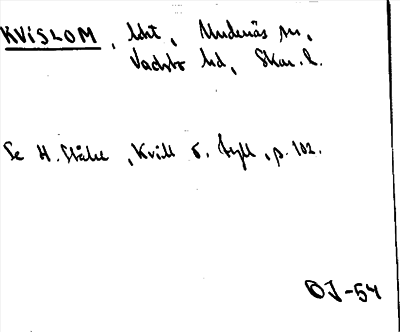 KVISLOM, lht, Undenäs sn,
Vadsbo hd, Skar. l.
Se H. Ståhl, Kvill o. tyll, p. 102.
OJ-54